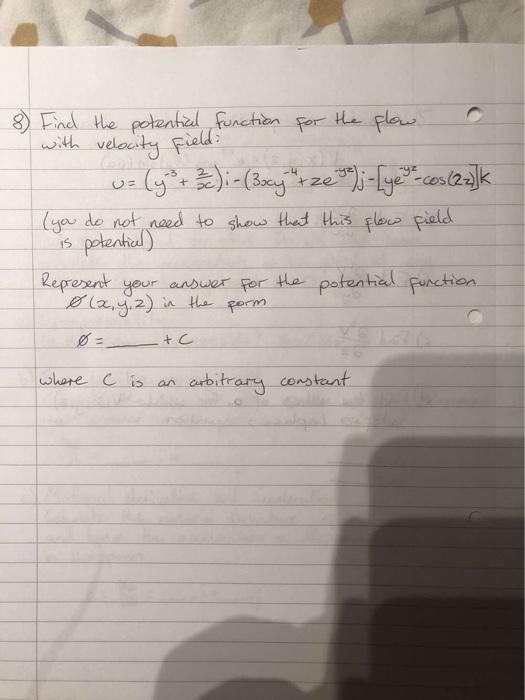 8) Find the potential function for the flow
with velocity field:
u = (y⁻³ + 2/x)i - (3xy⁻⁴ + ze⁻ʸᶻ)j - [ye⁻ʸᶻ - cos(2z)]k
(you do not need to show that this flow field
is potential)
Represent your answer for the potential function
Ø(x,y,z) in the form
Ø = ____ + C
where C is an arbitrary constant